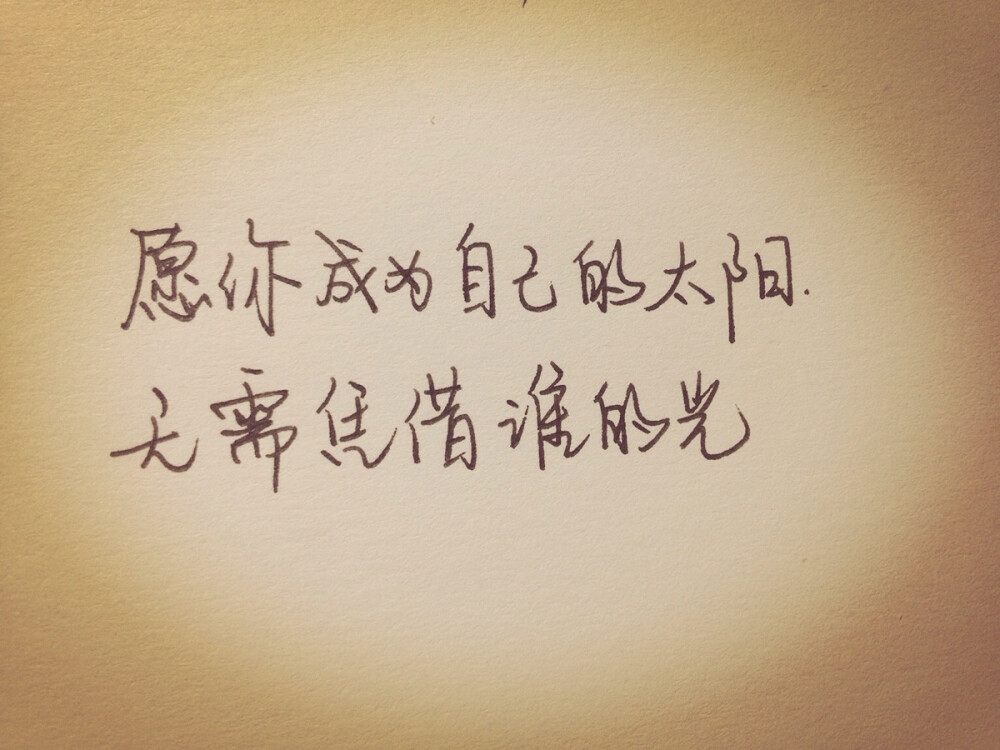 愿你成为自己的太阳.
无需凭借谁的光